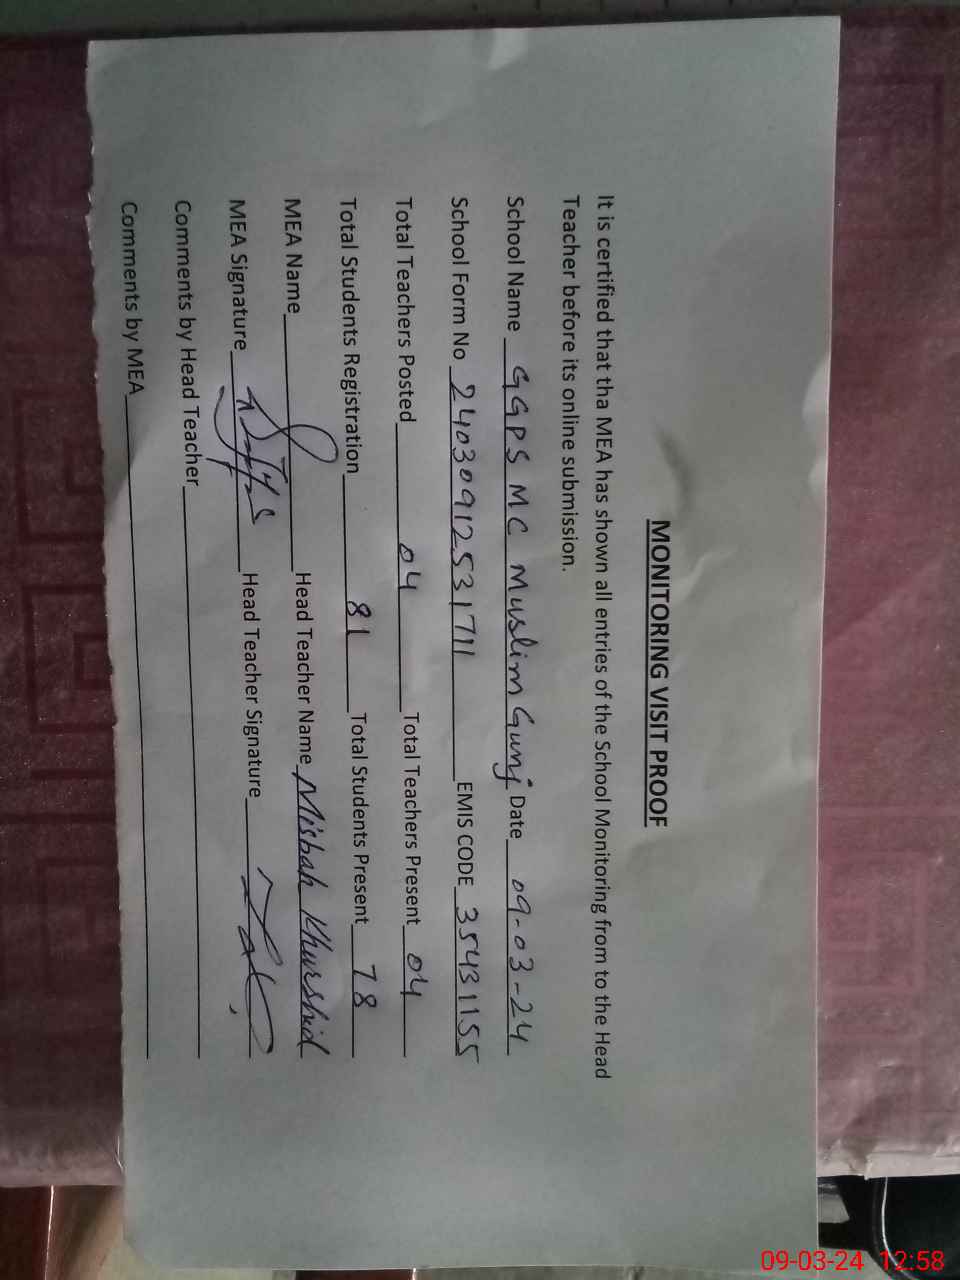 MONITORING VISIT PROOF
It is certified that tha MEA has shown all entries of the School Monitoring from to the Head
Teacher before its online submission.
School Name GGPS MC Muslim Gunj Date 09-03-24
School Form No 24030912531711 EMIS CODE 35431155
Total Teachers Posted 04 Total Teachers Present 04
Total Students Registration 81 Total Students Present 78
MEA Name Head Teacher Name Misbah Khurshid
MEA Signature Head Teacher Signature
Comments by Head Teacher
Comments by MEA
09-03-24 12:58